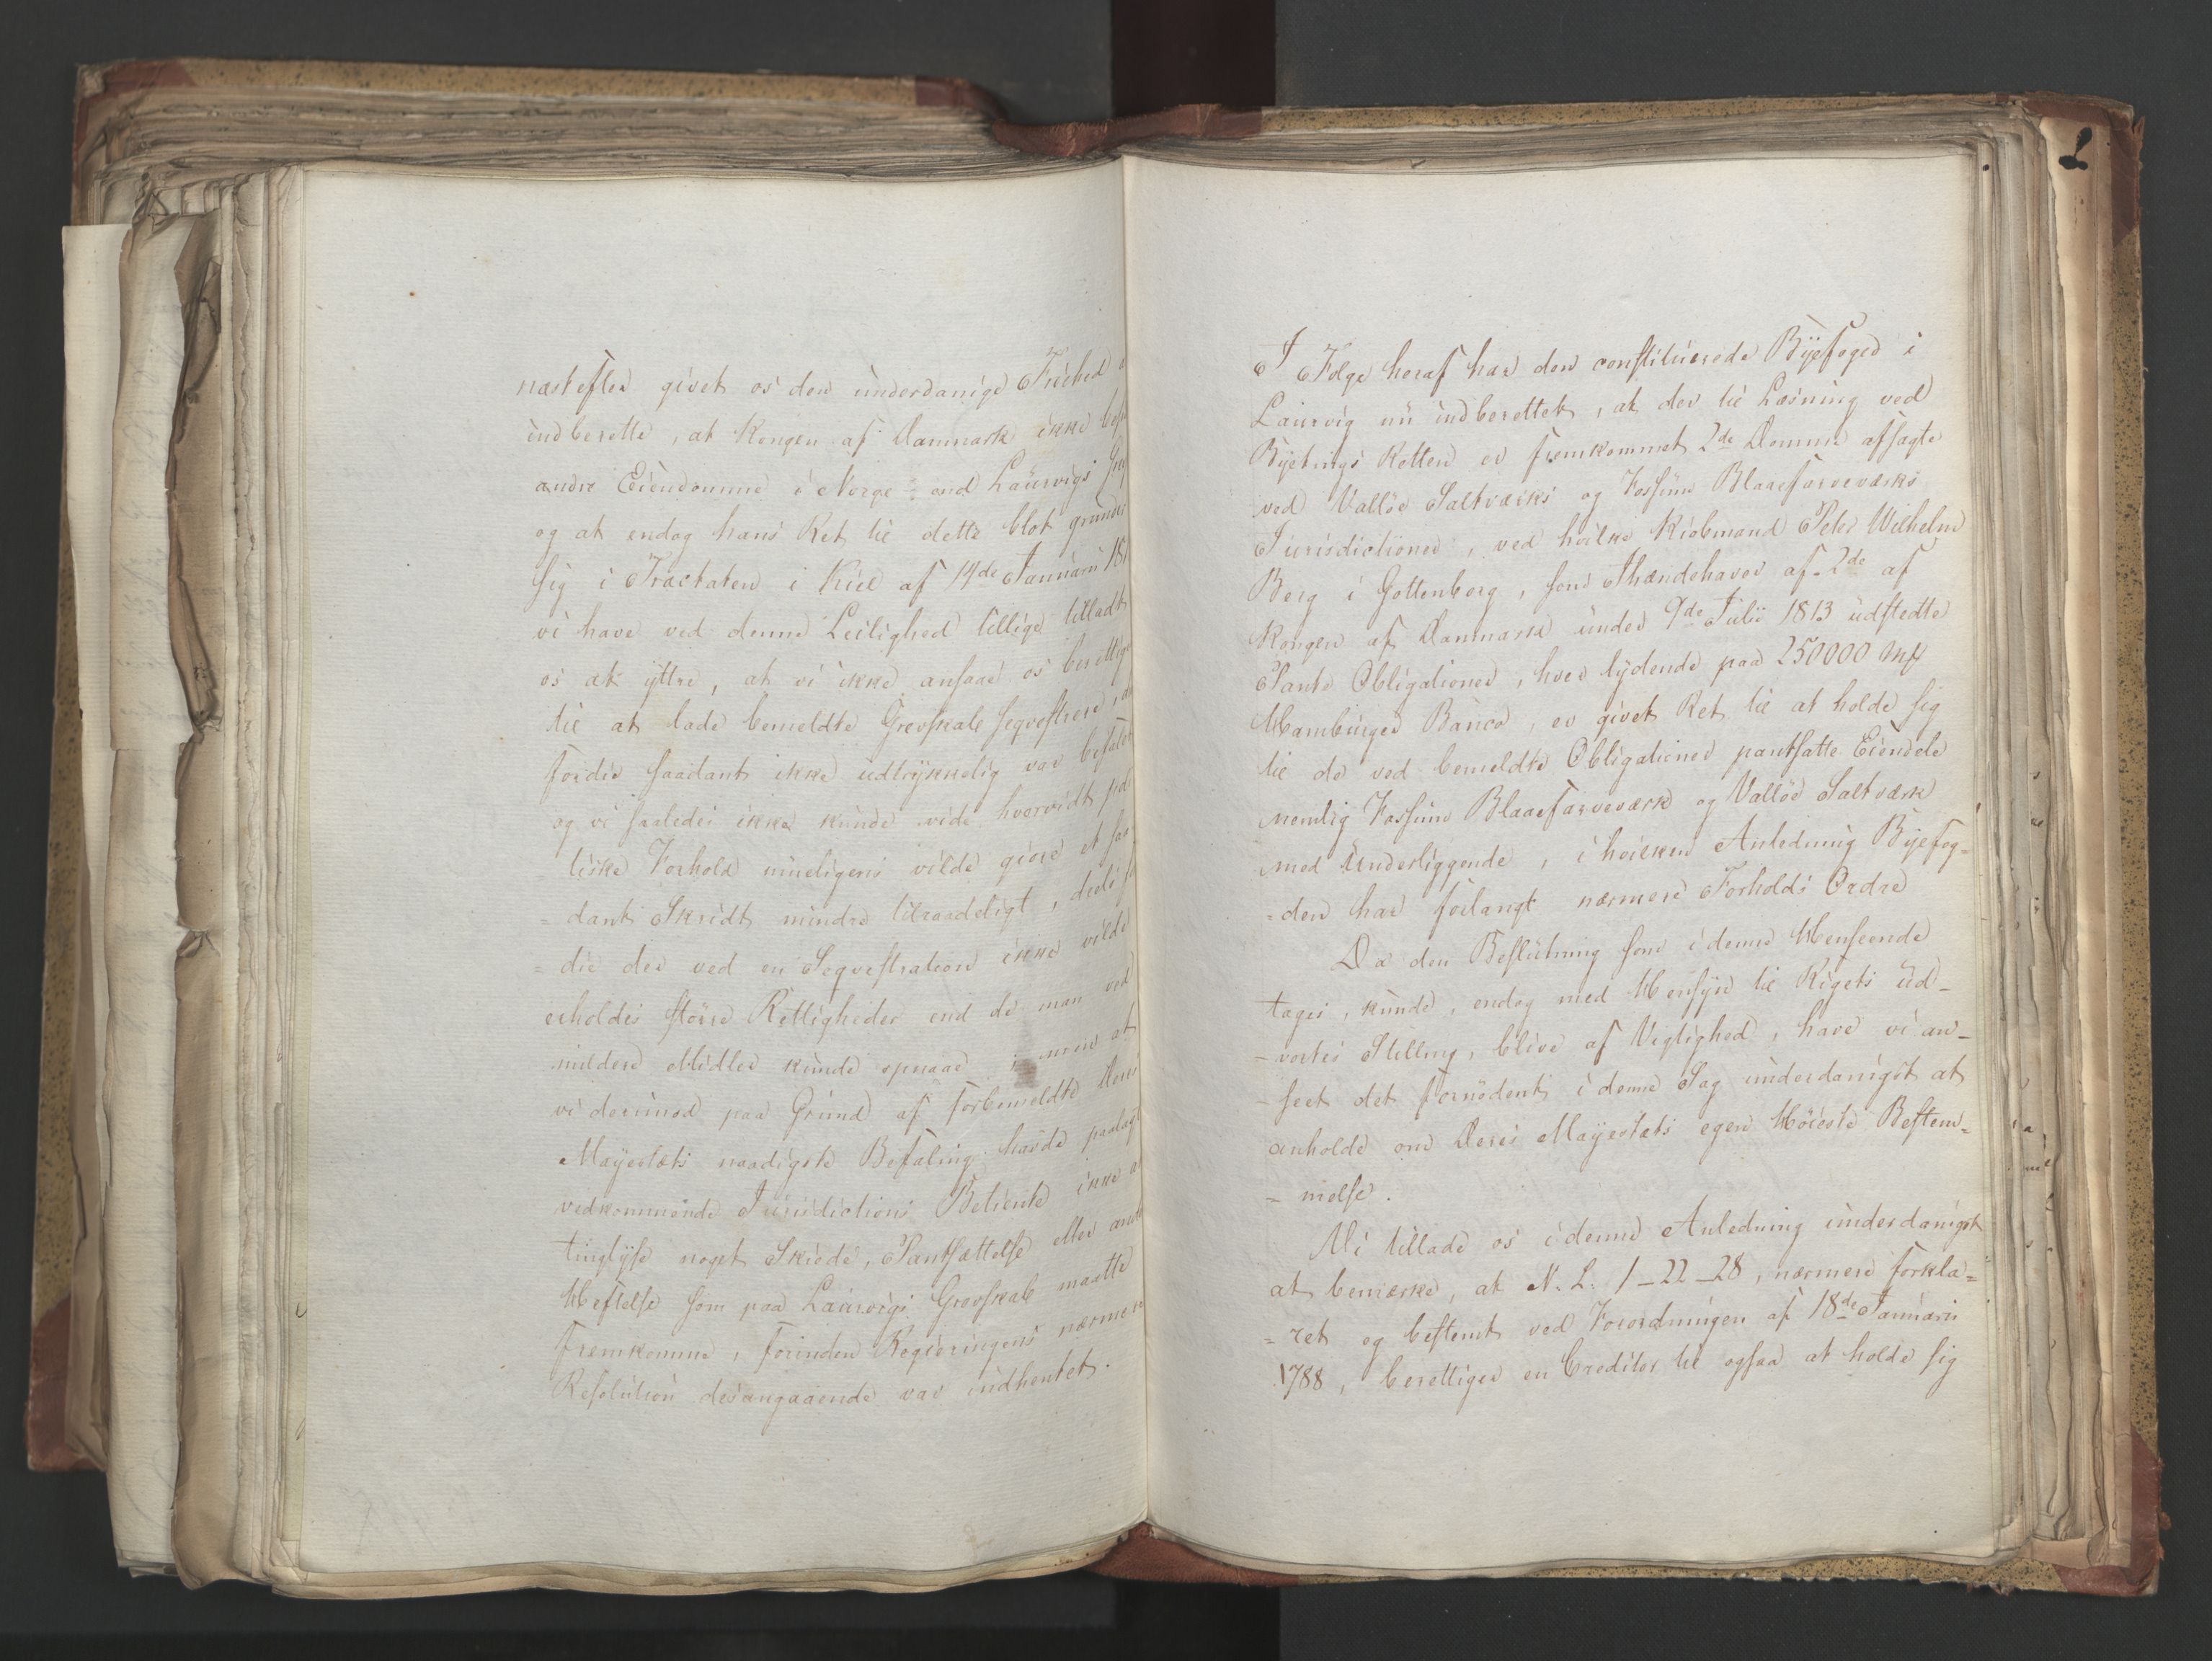 næstefter givet os den underdanige Friehed
indberette, at Kongen af Danmark ikke
andre Eiendomme i Norge end Laurvigs
og at endog hans Ret til dette blot grunder
sig i Tractaten i Kiel af 14de Januarii 181
vi have ved denne Leilighed tillige tilladt
os at yttre, at vi ikke ansaae os berettige
til at lade bemeldte Grevskab seqvestrere,
fordie saadant ikke udtrykkelig var befalet
og vi saaledes ikke kunde vide hvorvidt po
litiske Forhold mueligens vilde giøre et saa
= dant Skridt mindre tilraadeligt, deels
= die der ved en Seqvestration ikke vilde
erholdes större Rettigheder end de man ved
mildere Midler kunde opnaae; men at
vi derimod paa Grund af forbemeldte Deres
Mayestæts naadigste Befaling havde paalagt
vedkommende Jurisdictions Betiente ikke
tinglyse noget Skiøde, Pantsættelse eller
Heftelse som paa Laurvigs Grevskab maatte
fremkomme, forinden Regieringens nærmere
Resolution desangaaende var indhentet.
I Følge heraf har den constituerede Byefoged i
Laurvig nu indberettet, at der til Læsning ved
Byetings Retten er fremkommet 2de Domme afsagte
ved Valløe Saltværks og Fossum Blaafarveværks
Jurisdictioner, ved hvilke Kiøbmand Peter Wilhelm
Berg i Gottenborg, som Ihændehaver af 2de af
Kongen af Danmark under 9de Julii 1813 udstedte
Pante Obligationer, hver lydende paa 250000 Mk
Hamburger Banco, er givet Ret til at holde sig
til de ved bemeldte Obligationer pantsatte Eiendele
nemlig Fossum Blaafarveværk og Valløe Saltværk
med Underliggende, i hvilken Anledning Byefog=
=den har forlangt nærmere Forholds Ordre
Da den Beslutning som i denne Henseende
tages, kunde, endog med Hensyn til Rigets ud-
-vortes Stilling, blive af Vigtighed, have vi an-
-seet det fornødent i denne Sag underdanigst at
anholde om Deres Mayestæts egen Höieste Bestem-
= melse.
Vi tillade os i denne Anledning underdanigst
at bemærke, at N. L. 1-22-28, nærmere forkla=
=ret og bestemt ved Forordningen af 18de Januarii
1788, berettiger en Creditor til ogsaa at holde sig